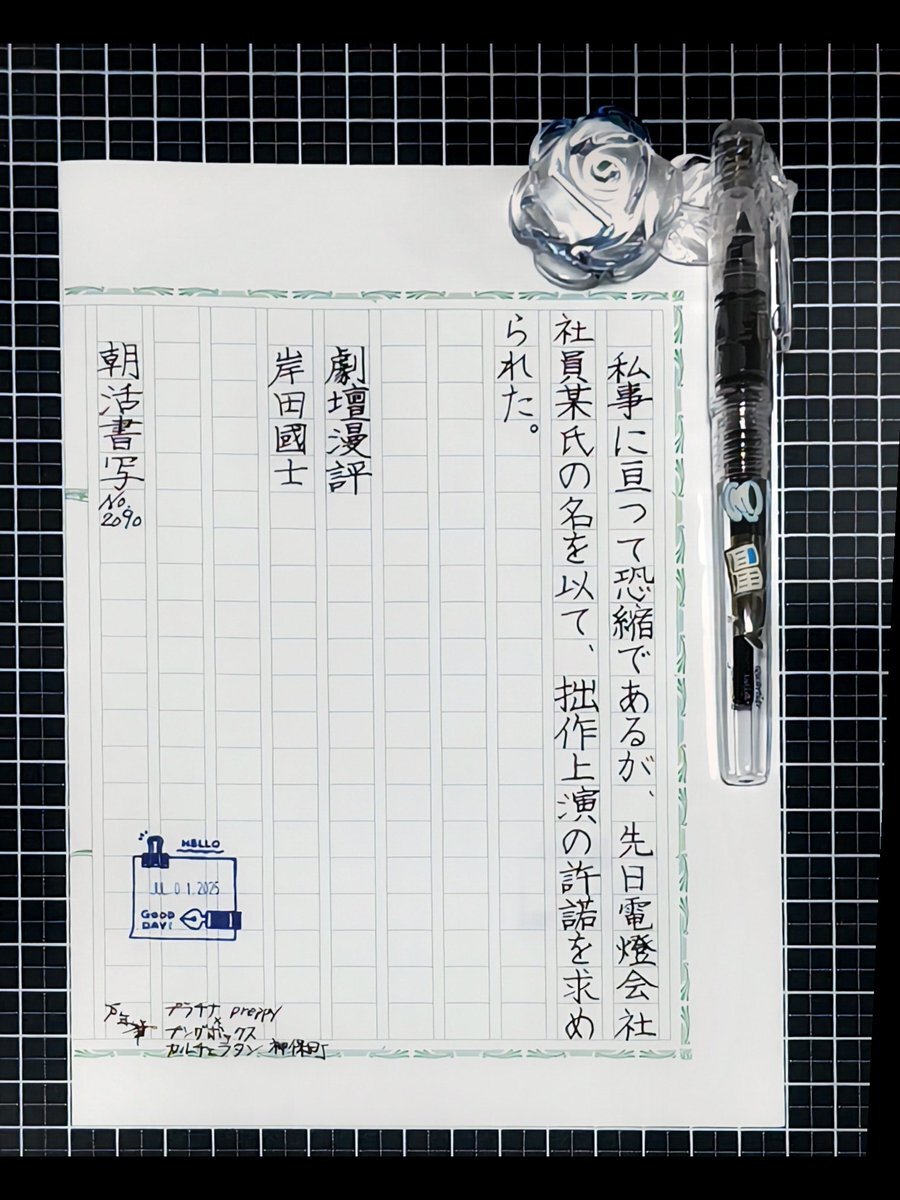 私事に亘つて恐縮であるが、先日電燈会社
社員某氏の名を以て、拙作上演の許諾を求め
られた。
劇壇漫評
岸田國士
朝活書写
No.
2090
HELLO
JUL 01 2025
GOOD
DAY!
万年筆
プラチナ preppy
×
ブングボックス
カルチェラタン、神保町